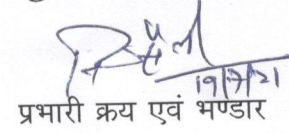 19/7/21
प्रभारी क्रय एवं भण्डार